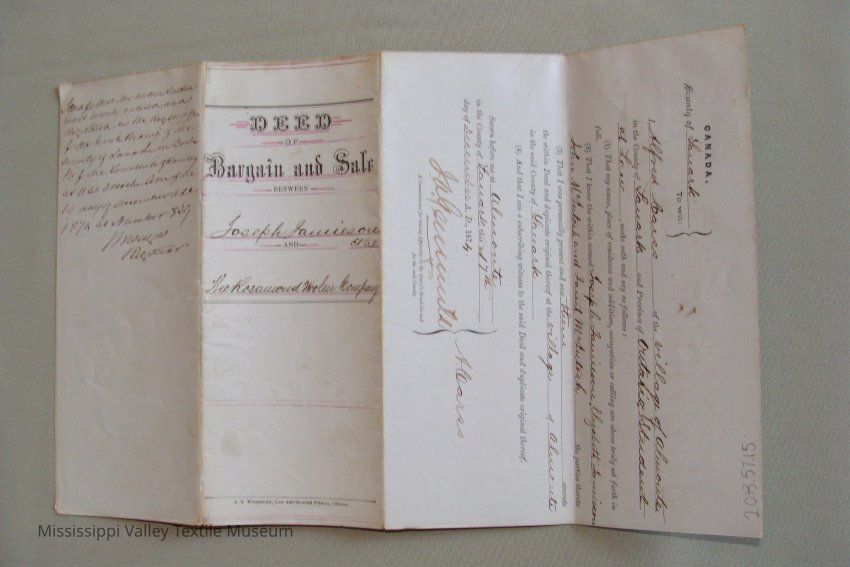 DEED
OF
Bargain and Sale
BETWEEN
Joseph Jamieson
et al
AND
The Rosamond Woolen Company
A. S. Woodburn, Law and General Printer, Ottawa.
CANADA.
County of Lanark
To wit:
I, Alfred Carss of the village of Almonte
in the County of Lanark and Province of Ontario Student
at Law make oath and say as follows:
(1) That my name, place of residence and addition, occupation or calling are above truly set forth in
full.
(2) That I know the within named Joseph Jamieson, Elizabeth Jamieson
John McIntosh and McIntosh the parties thereto
(3) That I was personally present and saw them execute
the within Deed and duplicate original thereof at the village of Almonte
in the said County of Lanark
(4) And that I am a subscribing witness to the said Deed and duplicate original thereof.
Sworn before me at Almonte
in the County of Lanark this 17th
day of December A. D., 1874
A Carss
A Commissioner for taking Affidavits in the Queen's Bench in and
for the said County.
County of Lanark in Book
at 11:30 o'clock of the
17 day of December
1874 as Number 539
Registrar
2085715
Mississippi Valley Textile Museum